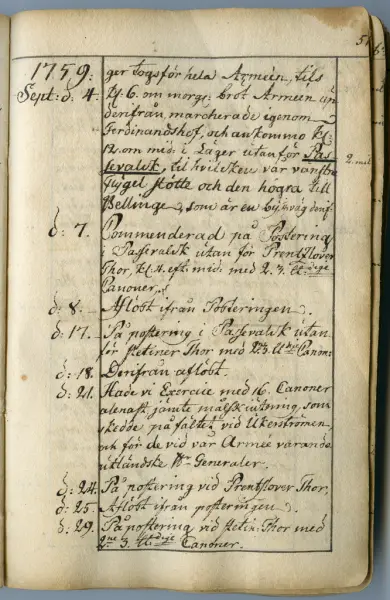 51
1759. ger togs för hela Arméen, tils
Sept: d. 4. kl. 6. om morg: bröt Arméen up
derifrån, marcherade igenom
Ferdinandshof, och ankommo kl.
12. om mid: i Läger utanför Pas-
sevalck, til hvilcken vår vänst:
flygel stötte och den högra till
Bellinge, som är en by
d: 7. Commenderad på Postering
i Passevalck utan för Prentzlover
Thor, kl. 4. eft: mid: med 2. 3. ℔dige
Canoner.
d: 8. Aflöst ifrån Posteringen.
d: 17. På postering i Passevalck utan
för Stetiner Thor med 2. 3. ℔dige Canon:
d: 18. Derifrån aflöst.
d: 21. Hade vi Exercice med 16. Canoner
jämte målskiutning, som
skedde på fältet vid Ukerströmen,
och för de vid vår Armée varande
utländske Hrr Generaler.
d: 24. På postering vid Prentzlover Thor.
d: 25. Aflöst ifrån posteringen.
d: 29. På postering vid Stetin: Thor med
2ne 3. ℔dige Canoner.